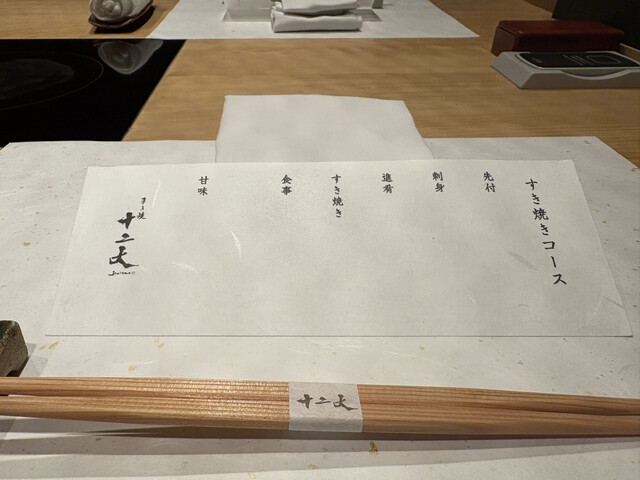 すき焼きコース
先付
刺身
進肴
すき焼き
食事
甘味
すき焼
十二天
十二天